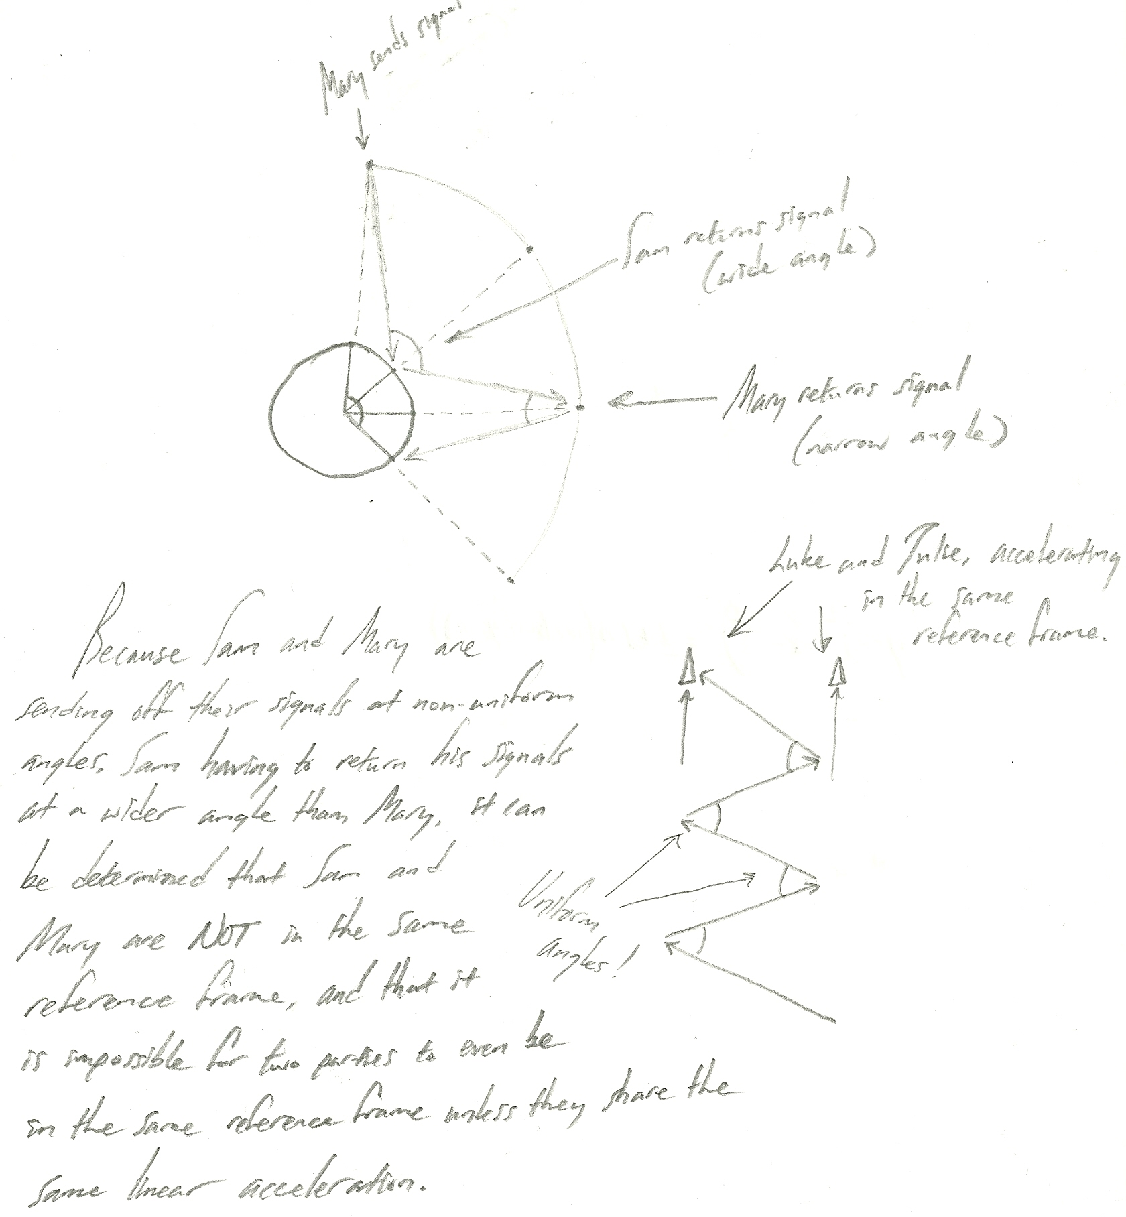 Mary sends signal
Sam returns signal
(wide angle)
Mary returns signal
(narrow angle)
Luke and Julie, accelerating
in the same
reference frame.
Because Sam and Mary are
sending off their signals at non-uniform
angles, Sam having to return his signals
at a wider angle than Mary, it can
be determined that Sam and
Mary are NOT in the same
reference frame, and that it
is impossible for two parties to even be
in the same reference frame unless they share the
same linear acceleration.
Uniform
angles!